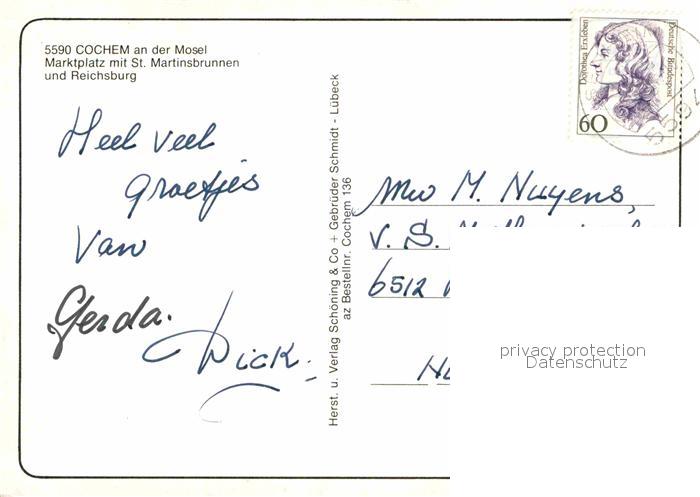 5590 COCHEM an der Mosel
Marktplatz mit St. Martinsbrunnen
und Reichsburg
Heel veel
groetjes
van
Gerda.
Dick.
Herst. u. Verlag Schöning & Co + Gebrüder Schmidt - Lübeck
az Bestellnr. Cochem 136
Dorothea Erxleben
Deutsche Bundespost
60
Mw M. Nuyens,
V. S.
6512
privacy protection
Datenschutz